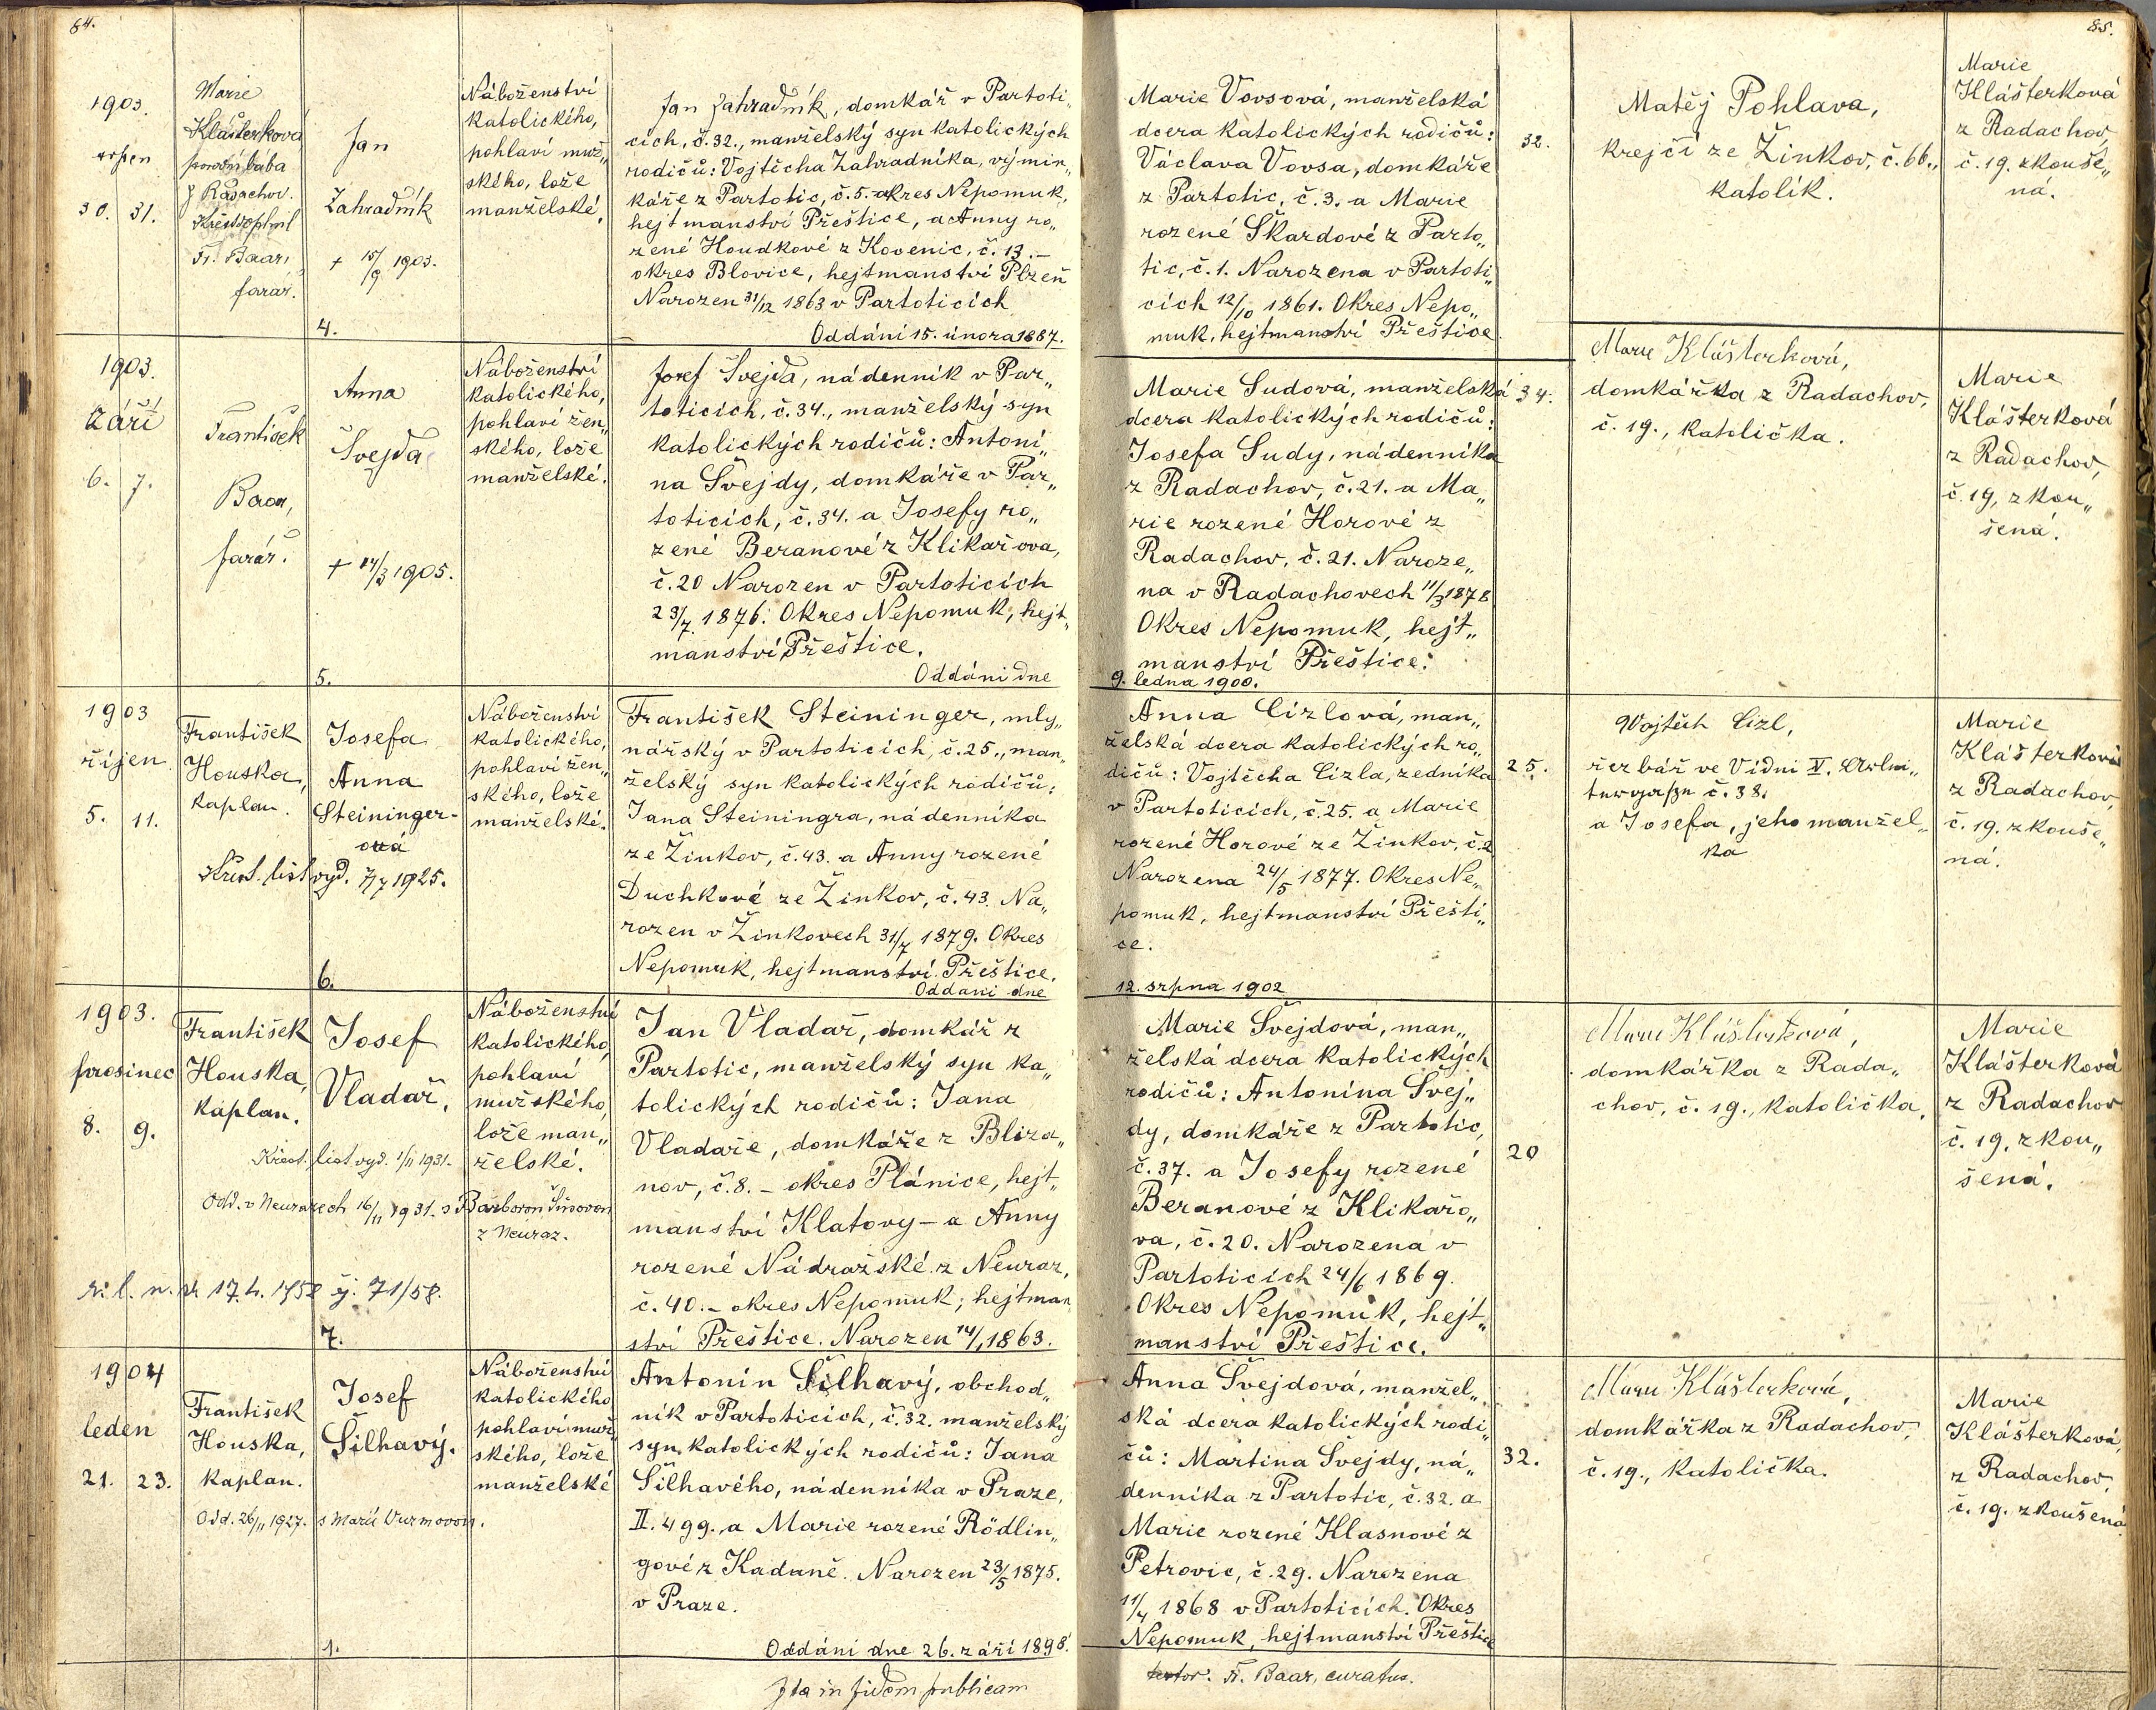 64.
1903.
srpen
30. 31.
Marie
Klášterková
porodní bába
z Radachov.
Křest doplnil
Fr. Baar,
farář.
Jan
Zahradník
+ 15/9 1903.
4.
Náboženství
katolického,
pohlaví muž„
ského, lože
manželské.
Jan Zahradník, domkář v Partoti„
cích, č. 32., manželský syn katolických
rodičů: Vojtěcha Zahradníka, výmin„
káře z Partotic, č. 5. okres Nepomuk,
hejtmanství Přeštice, a Anny ro„
zené Houdkové z Kovenic, č. 13. –
okres Blovice, hejtmanství Plzeň
Narozen 31/12 1863 v Partoticích
Oddáni 15. února 1887.
1903.
Září
6. 7.
František
Baar,
farář.
Anna
Švejda
+ 14/3 1905.
5.
Náboženství
katolického,
pohlaví žen„
ského, lože
manželské.
Josef Švejda, nádenník v Par„
toticích, č. 34., manželský syn
katolických rodičů: Antoní„
na Švejdy, domkáře v Par„
toticích, č. 34. a Josefy ro„
zené Beranové z Klikařova,
č. 20 Narozen v Partoticích
23/7. 1876. Okres Nepomuk, hejt„
manství Přeštice.
Oddáni dne
1903
říjen
5. 11.
František
Houska,
kaplan.
Josefa
Anna
Steininger-
ová
Křest. list vyd. 7/7 1925.
6.
Náboženství
katolického,
pohlaví žen„
ského, lože
manželské.
František Steininger, mly„
nářský v Partoticích, č. 25., man„
želský syn katolických rodičů:
Jana Steiningra, nádenníka
ze Žinkov, č. 43. a Anny rozené
Duchkové ze Žinkov, č. 43. Na„
rozen v Žinkovech 31/7 1879. Okres
Nepomuk, hejtmanství Přeštice.
Oddáni dne
1903.
prosinec
8. 9.
František
Houska,
kaplan.
Josef
Vladař.
Křest. list vyd. 1/11 1931.
Odd. v Neurazech 16/11 1931. s Barborou Šímovou
z Neuraz.
17. 4. 1958 čj. 71/58.
7.
Náboženství
katolického,
pohlaví
mužského,
lože man„
želské.
Jan Vladař, domkář z
Partotic, manželský syn ka„
tolických rodičů: Jana
Vladaře, domkáře z Bliza„
nov, č. 8. – okres Plánice, hejt„
manství Klatovy – a Anny
rozené Nádražské z Neuraz,
č. 40. – okres Nepomuk; hejtman„
ství Přeštice. Narozen 14/1 1863.
1904
leden
21. 23.
František
Houska,
kaplan.
Josef
Šilhavý.
Odd. 26/11 1927. s Marií Vurmovou.
1.
Náboženství
katolického
pohlaví muž„
ského, lože
manželské
Antonín Šilhavý, obchod„
ník v Partoticích, č. 32. manželský
syn katolických rodičů: Jana
Šilhavého, nádenníka v Praze,
II. 499. a Marie rozené Rödlin„
gové z Kadaně. Narozen 23/5 1875.
v Praze.
Oddáni dne 26. září 1898.
Ita in fidem publicam
85.
Marie Vovsová, manželská
dcera katolických rodičů:
Václava Vovsa, domkáře
z Partotic, č. 3. a Marie
rozené Škardové z Parto„
tic, č. 1. Narozena v Partoti„
cích 12/10 1861. Okres Nepo„
muk, hejtmanství Přeštice
32.
Matěj Pohlava,
krejčí ze Žinkov, č. 66.,
katolík.
Marie
Klášterková
z Radachov,
č. 19. zkouše„
ná.
Marie Sudová, manželská
dcera katolických rodičů:
Josefa Sudy, nádenníka
z Radachov, č. 21. a Ma„
rie rozené Horové z
Radachov, č. 21. Naroze„
na v Radachovech 11/3 1878
Okres Nepomuk, hejt„
manství Přeštice.
9. ledna 1900.
34.
Marie Klášterková,
domkářka z Radachov,
č. 19., katolička.
Marie
Klášterková
z Radachov,
č. 19, zkou„
šená.
Anna Cizlová, man„
želská dcera katolických ro„
dičů: Vojtěcha Cizla, zedníka
v Partoticích, č. 25. a Marie
rozené Horové ze Žinkov, č. 2
Narozena 24/5 1877. Okres Ne„
pomuk, hejtmanství Přešti„
ce.
12. srpna 1902
25.
Vojtěch Cizl,
řezbář ve Vídni V.
č. 38.
a Josefa, jeho manžel„
ka
Marie
Klášterková
z Radachov,
č. 19. zkouše„
ná.
Marie Švejdová, man„
želská dcera katolických
rodičů: Antonína Švej„
dy, domkáře z Partotic,
č. 37. a Josefy rozené
Beranové z Klikařo„
va, č. 20. Narozena v
Partoticích 24/6 1869.
Okres Nepomuk, hejt„
manství Přeštice.
20
Marie Klášterková,
domkářka z Rada„
chov, č. 19., katolička.
Marie
Klášterková
z Radachov
č. 19, zkou„
šená.
Anna Švejdová, manžel„
ská dcera katolických rodi„
čů: Martina Švejdy, ná„
denníka z Partotic, č. 32. a
Marie rozené Klasnové z
Petrovic, č. 29. Narozena
11/4 1868 v Partoticích. Okres
Nepomuk, hejtmanství Přeštice
32.
Marie Klášterková,
domkářka z Radachov,
č. 19., katolička.
Marie
Klášterková,
z Radachov,
č. 19. zkoušená
Fr. Baar, curatus.